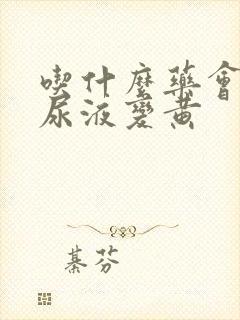 喫什麼藥會
尿液變黃
綦芬